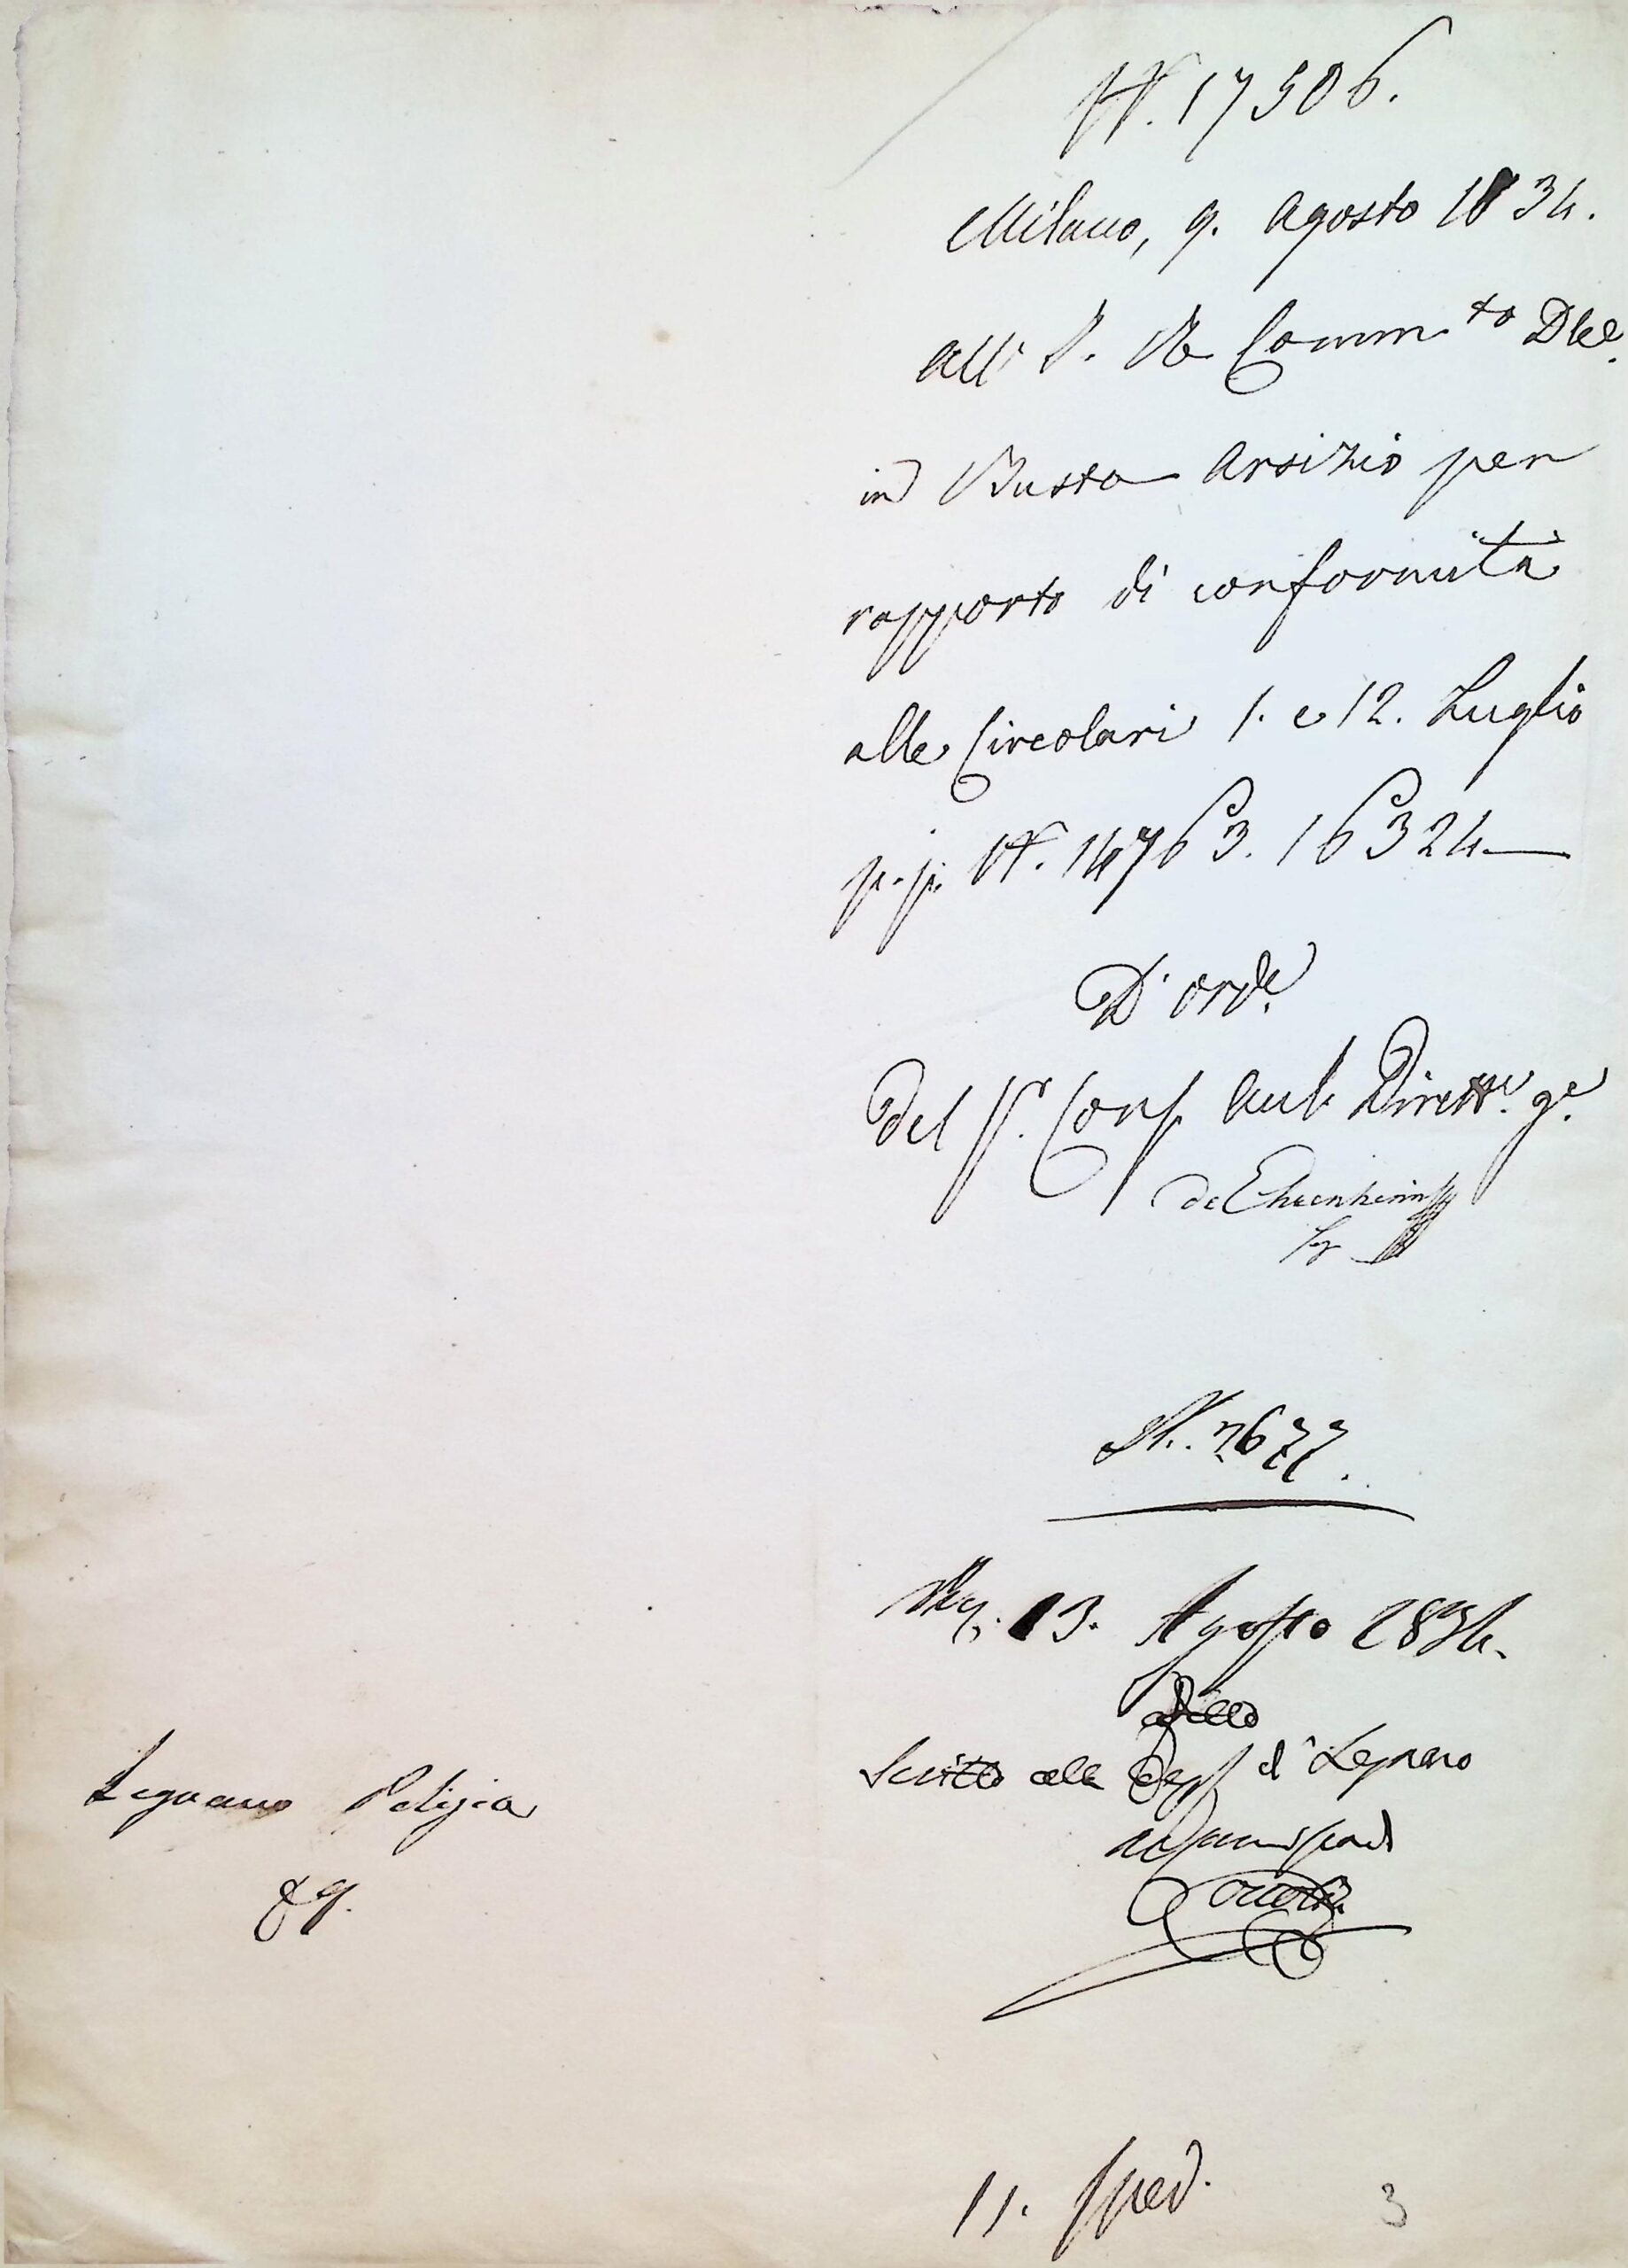 N. 17506.
Milano, 9. Agosto 1834.
All' I. R. Comm.to Dle.
in Busto Arsizio per
rapporto di conformità
alle Circolari 1. e 12. Luglio
p.p. N. 14763. 16324
D'ord.e
Del Sr. Cons. Aul. Dirett.e g.e
N. 2677.
13. Agosto 1834.
Scritto alla Dep. d' Legnano
Legnano Polizia
89.
11. Sped.
3